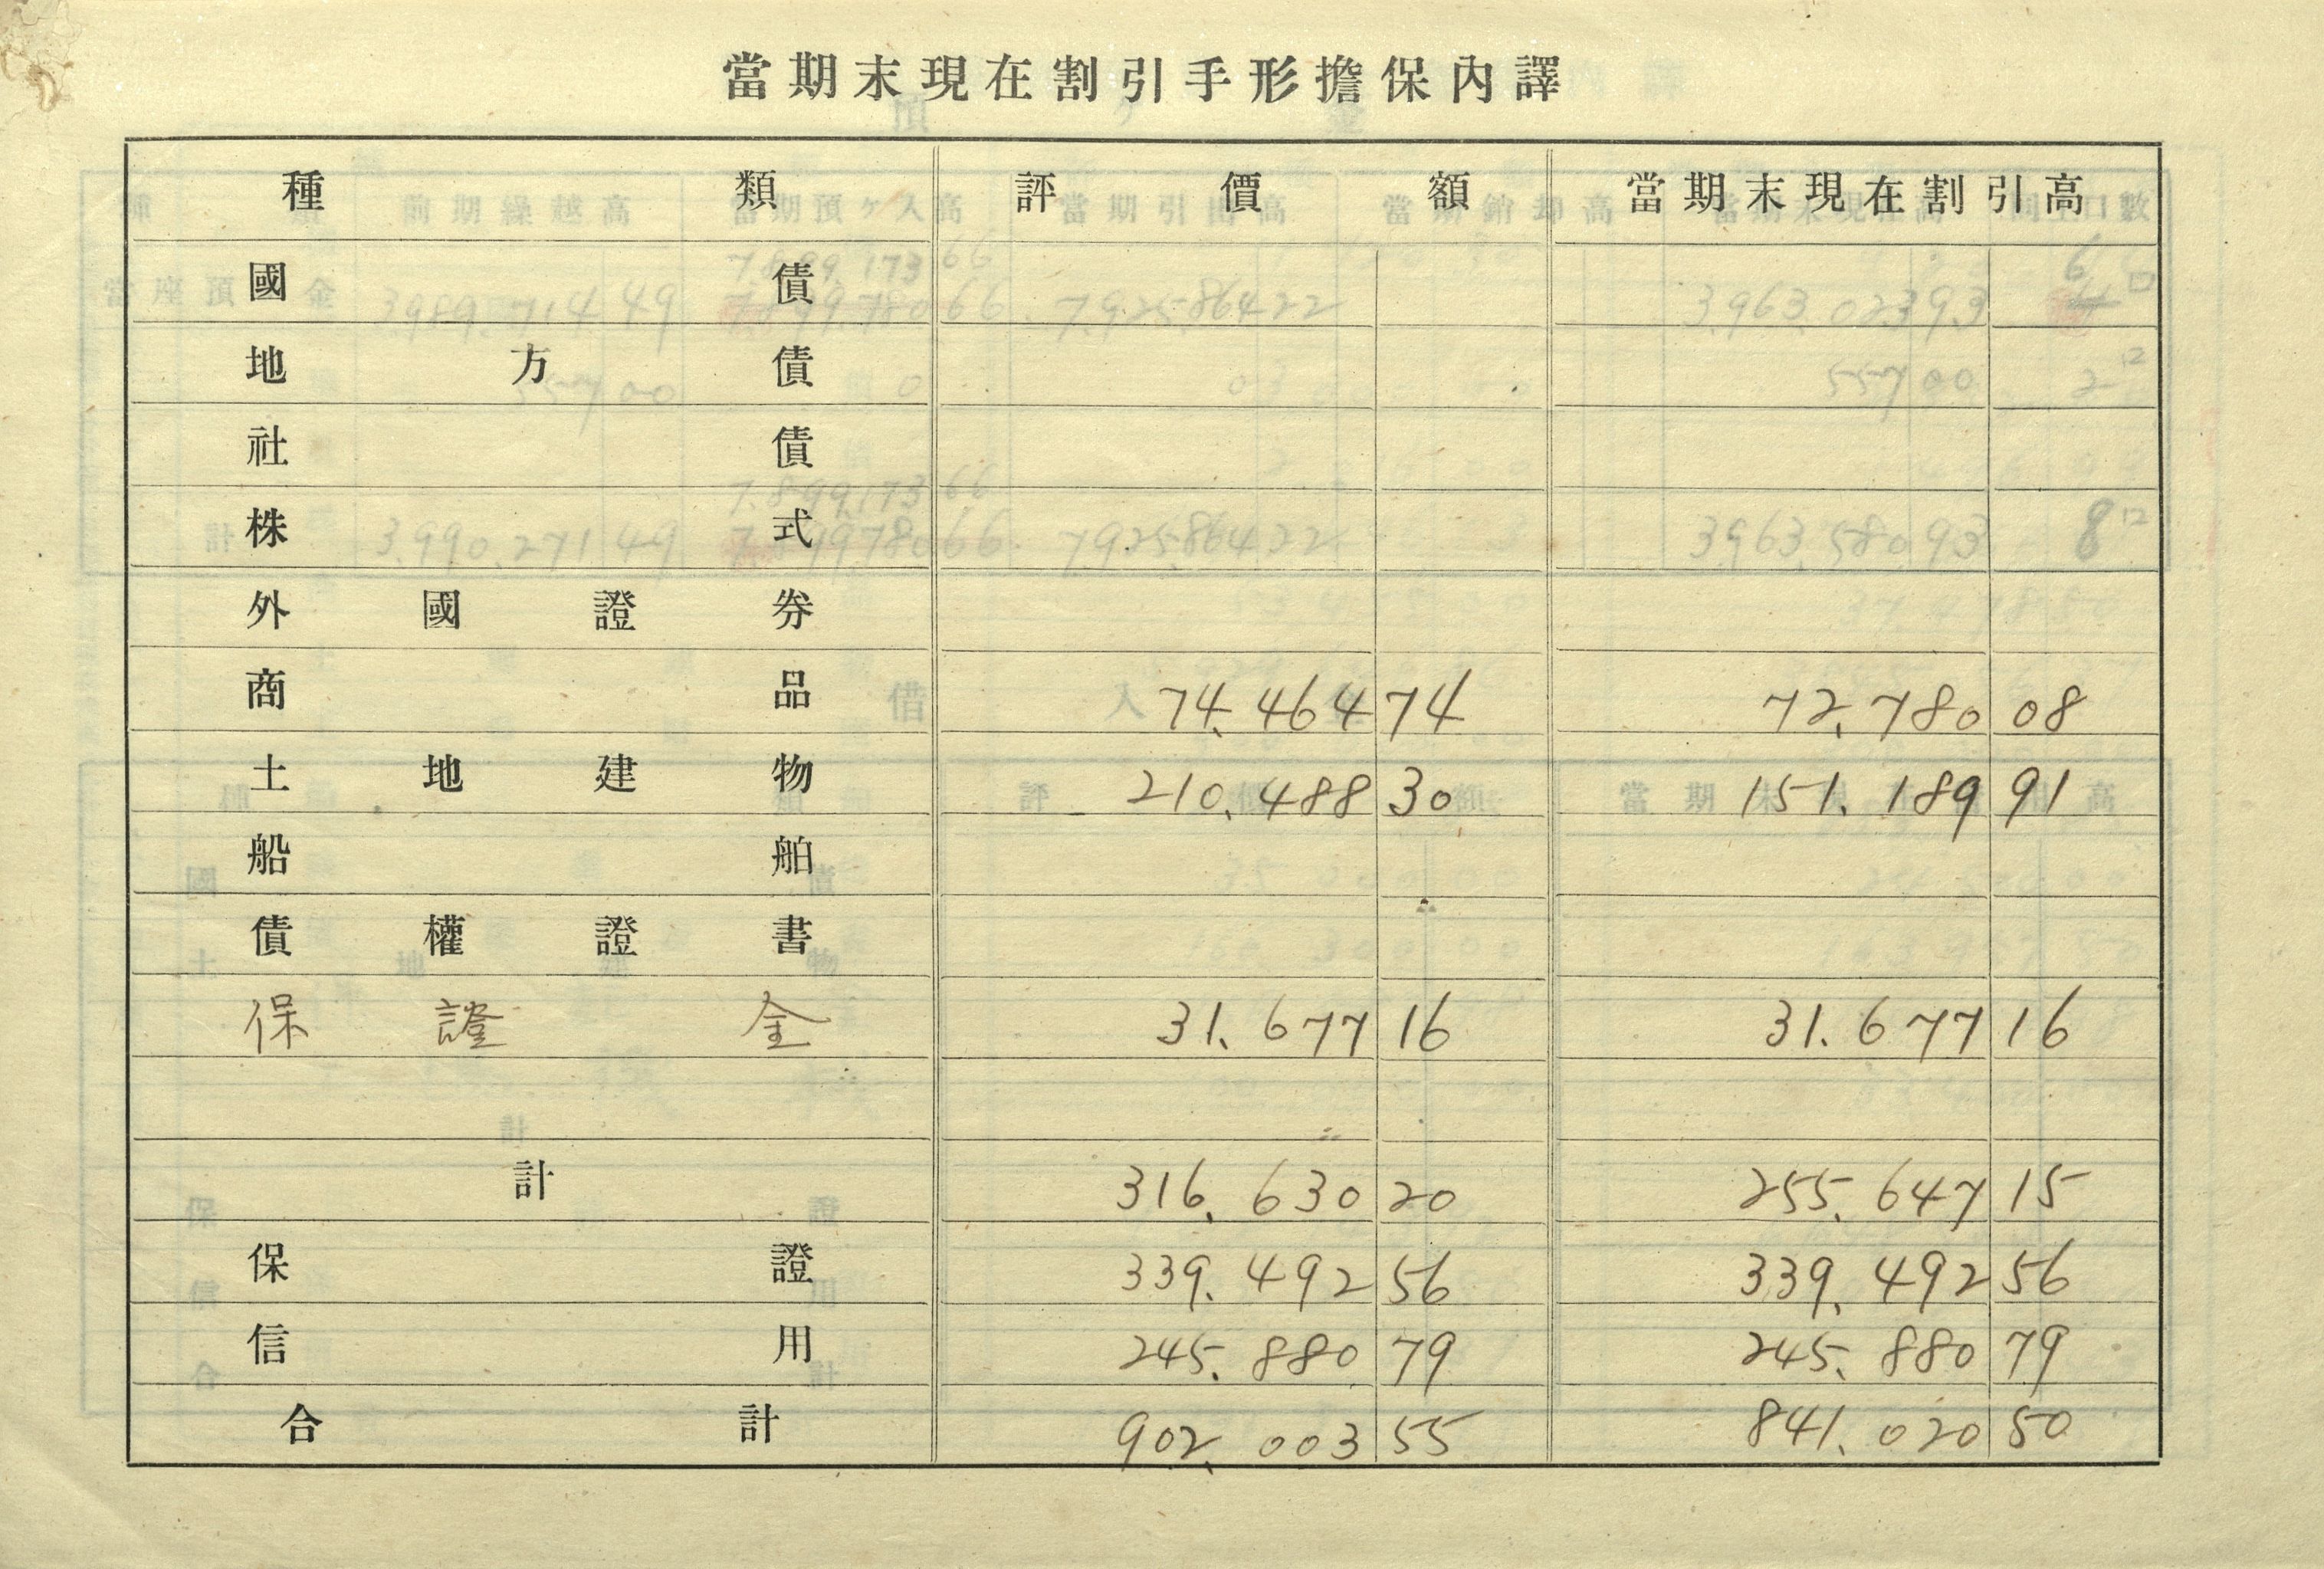 當期末現在割引手形擔保內譯
種類 評價額 當期末現在割引高
國債
地方債
社債
株式
外國證券
商品 74.464 74 72.780 08
土地建物 210.488 30 151.189 91
船舶
債權證書
保證金 31.677 16 31.677 16
計 316.630 20 255.647 15
保證 339.492 56 339.492 56
信用 245.880 79 245.880 79
合計 902.003 55 841.020 50